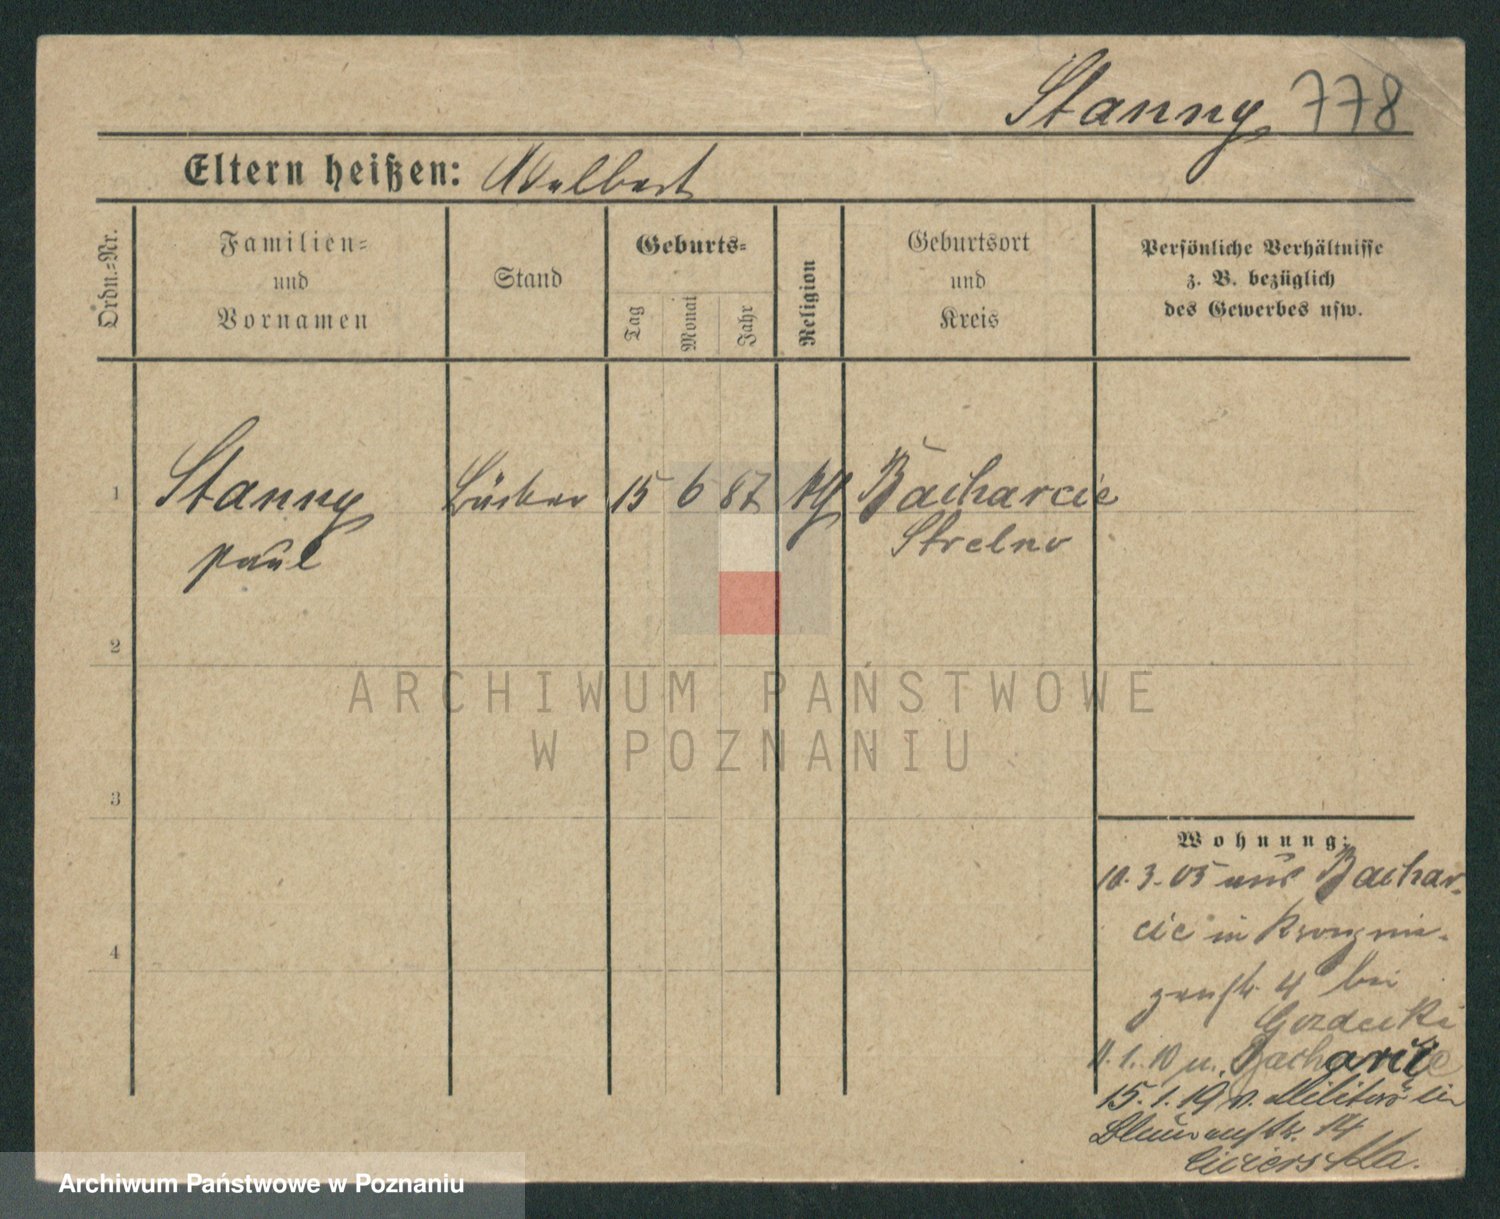 Stanny 778
Eltern heißen: Adalbert
Ordn.-Nr.
Familien-
und
Vornamen
Stand
Geburts-
Tag
Monat
Jahr
Religion
Geburtsort
und
Kreis
Persönliche Verhältnisse
z. B. bezüglich
des Gewerbes usw.
1 Stanny Bäcker 15 6 87 kth Bacharcie
Paul Strelno
2
3
4
Wohnung:
10.3.05 aus Bachar-
cie in
4 bei
Gozdecki
11.1.10 n. Bacharcie
15.1.19 v. Militär in
Blumenstr. 14
ARCHIWUM PAŃSTWOWE
W POZNANIU
Archiwum Państwowe w Poznaniu